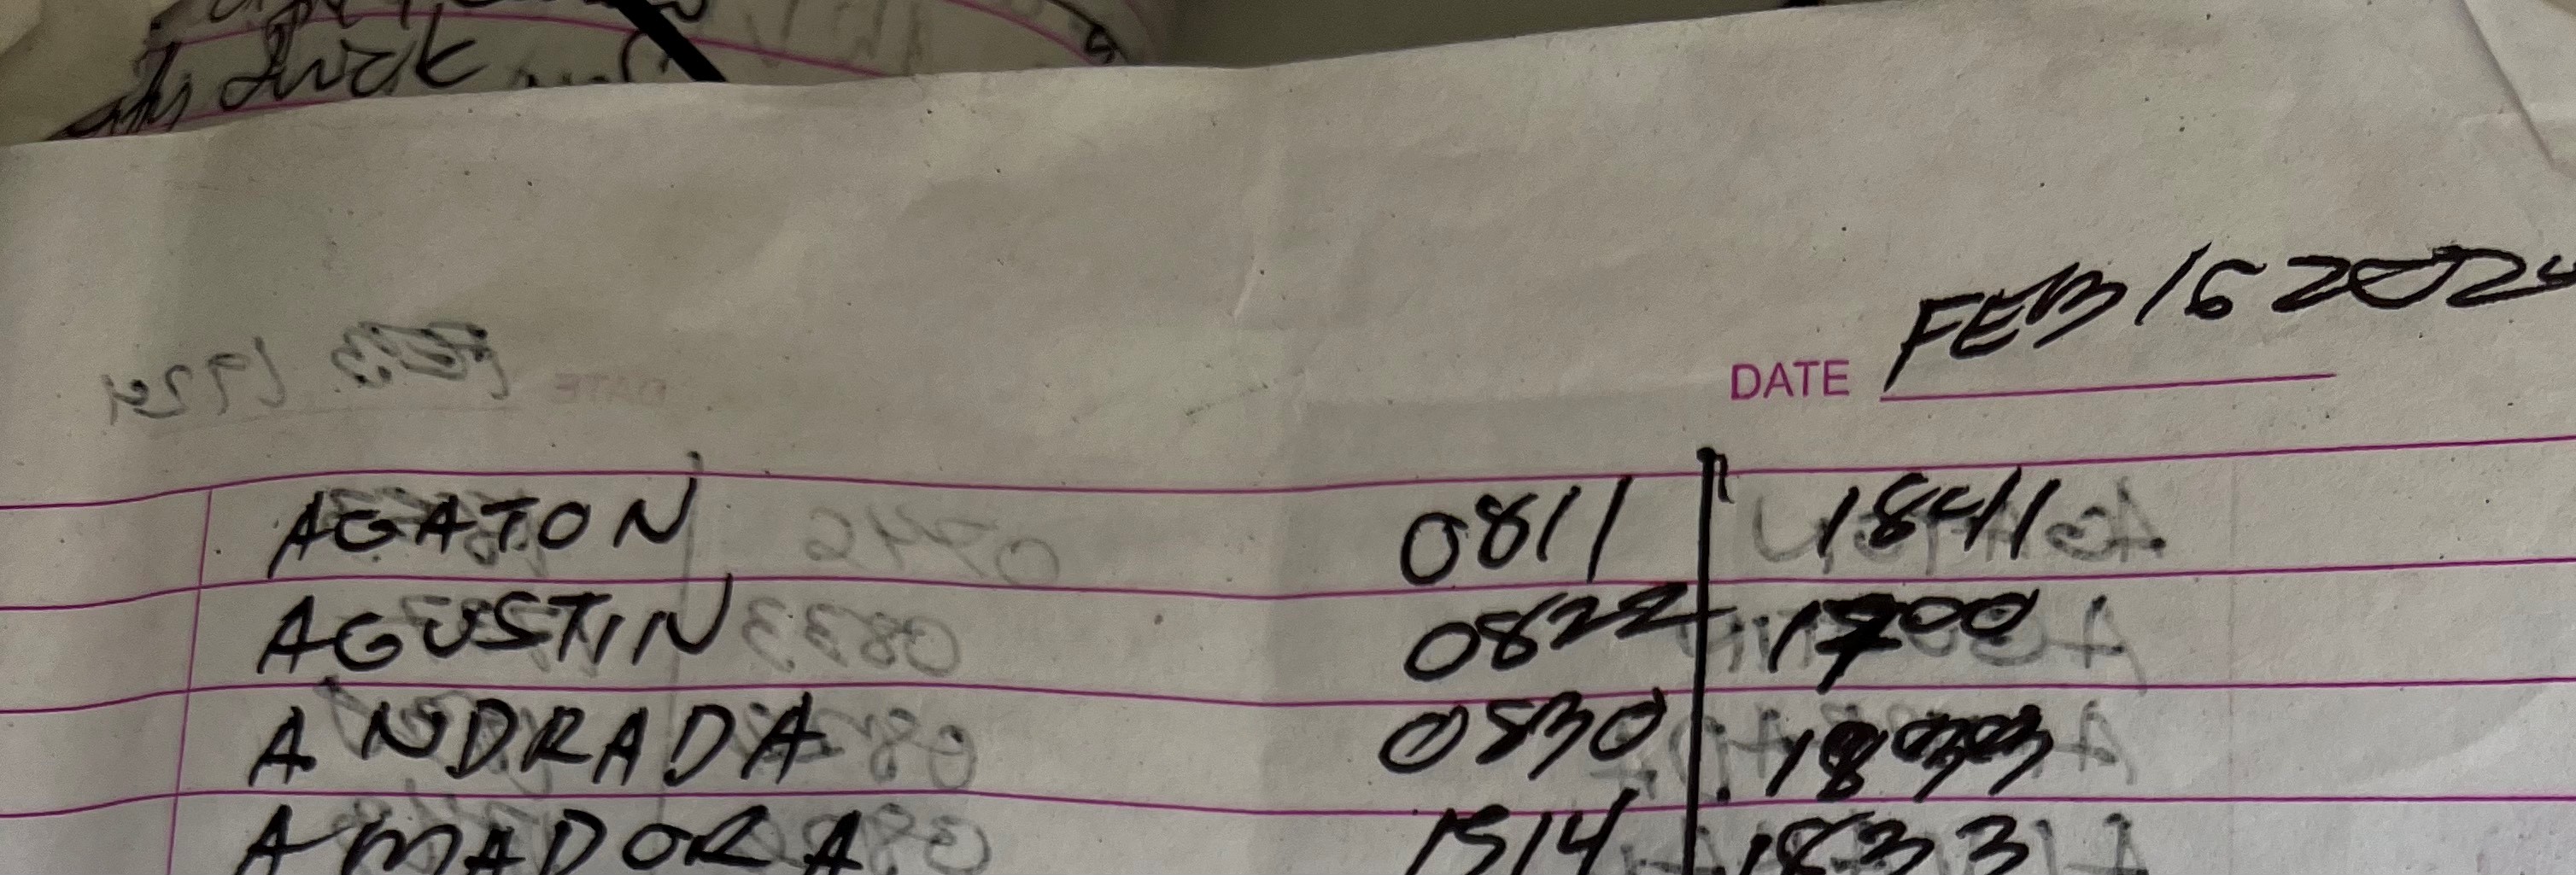 luck
DATE FEB 16 2024
AGATON 0811 1841
AGUSTIN 0822 1700
ANDRADA 0830 1833
AMADORA 1514 1833